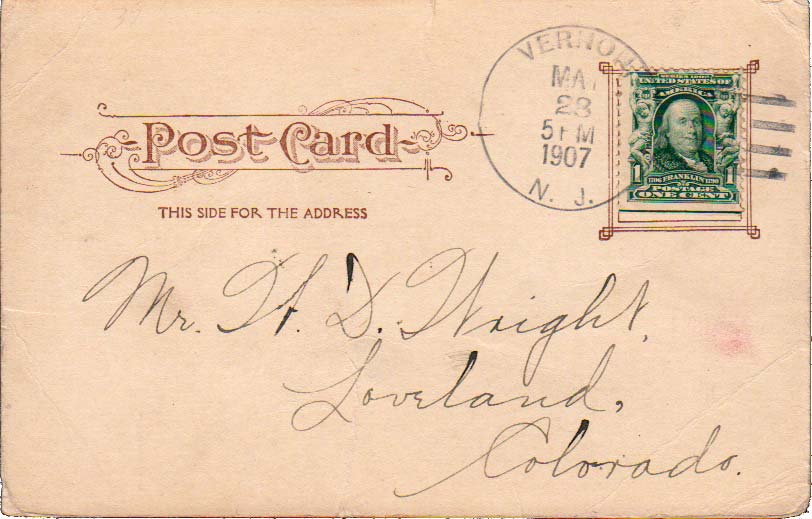 VERNON
MAY
28
5 PM
1907
N. J.
SERIES 1902
UNITED STATES OF
AMERICA
1 1
1706 FRANKLIN 1790
POSTAGE
ONE CENT
POST CARD
THIS SIDE FOR THE ADDRESS
Mr. W. D. Wright,
Loveland,
Colorado.